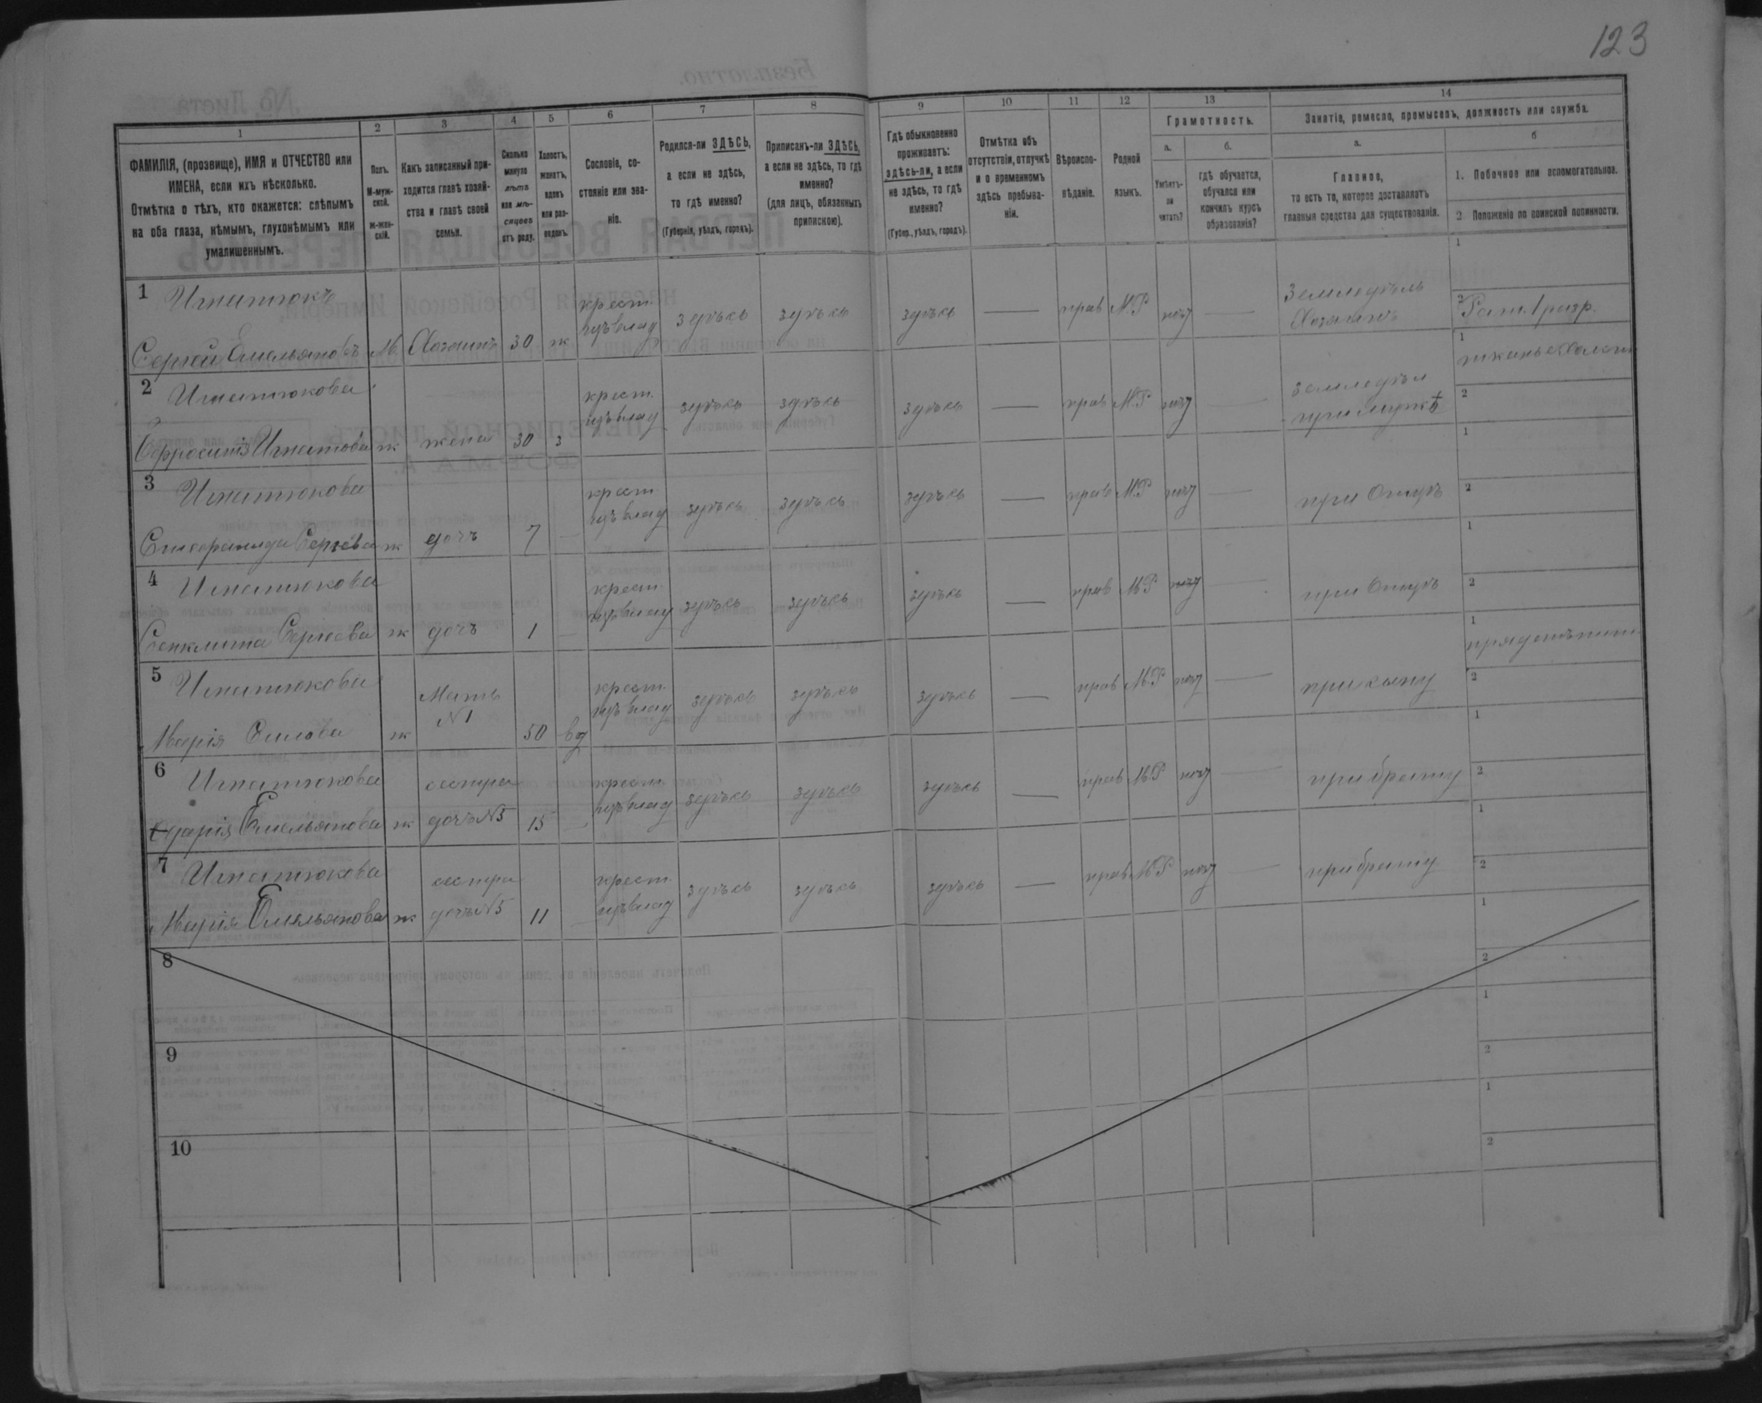 123
1 2 3 4 5 6 7 8 9 10 11 12 13 14
ФАМИЛІЯ, (прозвище), ИМЯ и ОТЧЕСТВО или
ИМЕНА, если ихъ нѣсколько.
Отмѣтка о тѣхъ, кто окажется: слѣпымъ
на оба глаза, нѣмымъ, глухонѣмымъ или
умалишеннымъ.
Полъ.
М-муж-
ской.
Ж-жен-
скій.
Какъ записанный при-
ходится главѣ хозяй-
ства и главѣ своей
семьи.
Сколько
минуло
лѣтъ
или мѣ-
сяцевъ
отъ роду.
Холостъ,
женатъ,
вдовъ
или раз-
веденъ.
Сословіе, со-
стояніе или зва-
ніе.
Родился-ли ЗДѢСЬ,
а если не здѣсь,
то гдѣ именно?
(Губернія, уѣздъ, городъ).
Приписанъ-ли ЗДѢСЬ,
а если не здѣсь, то гдѣ
именно?
(для лицъ, обязанныхъ
припискою).
Гдѣ обыкновенно
проживаетъ:
здѣсь-ли, а если
не здѣсь, то гдѣ
именно?
(Губер., уѣздъ, городъ).
Отмѣтка объ
отсутствіи, отлучкѣ
и о временномъ
здѣсь пребыва-
ніи.
Вѣроиспо-
вѣданіе.
Родной
языкъ.
Грамотность.
а.
Умѣетъ-
ли
читать?
б.
гдѣ обучается,
обучался или
кончилъ курсъ
образованія?
Занятіе, ремесло, промыселъ, должность или служба.
а.
Главное,
то есть то, которое доставляетъ
главныя средства для существованія.
б
1. Побочное или вспомогательное.
2. Положеніе по воинской повинности.
1 Игнатюкъ
Сергѣй Емельяновъ М Хозяинъ 30 ж крест. здѣсь здѣсь здѣсь — прав М.Р — Земледѣль
Хозяинъ
1
2 Рат. 1 разр.
2 Игнатюкова
Ефросинія Игнатова ж жена 30 з крест. здѣсь здѣсь здѣсь — прав М.Р — земледѣл
при мужѣ
1
2
3 Игнатюкова
Сергѣева ж дочь 7 крест. здѣсь здѣсь здѣсь — прав М.Р — при Отцѣ
1
2
4 Игнатюкова
Сергѣева ж дочь 1 крест. здѣсь здѣсь здѣсь — прав М.Р — при Отцѣ
1
2
5 Игнатюкова
Марія ж Мать
№ 1 50 вд крест. здѣсь здѣсь здѣсь — прав М.Р — при сыну
1
2
6 Игнатюкова
Емельянова ж сестра
дочь №5 15 крест. здѣсь здѣсь здѣсь — прав М.Р — при брату
1
2
7 Игнатюкова
Марія Емельянова ж сестра
дочь №5 11 крест. здѣсь здѣсь здѣсь — прав М.Р — при брату
1
2
8
1
2
9
1
2
10
1
2